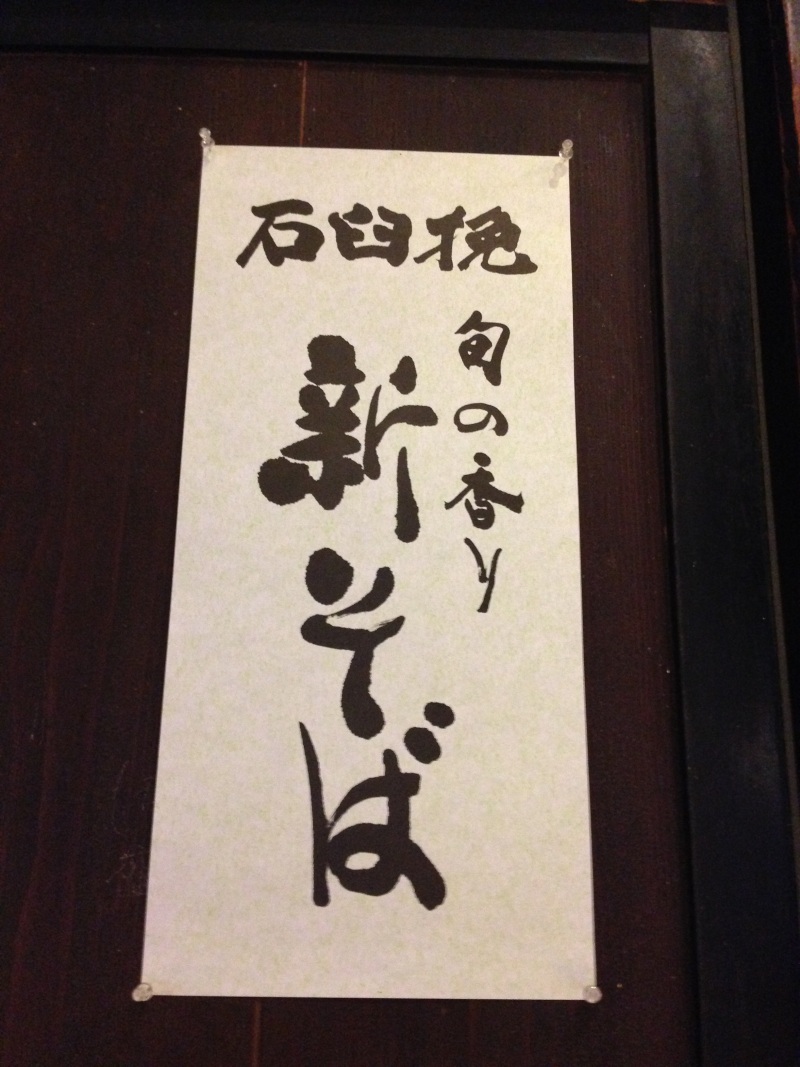 石臼挽
旬の香り
新そば